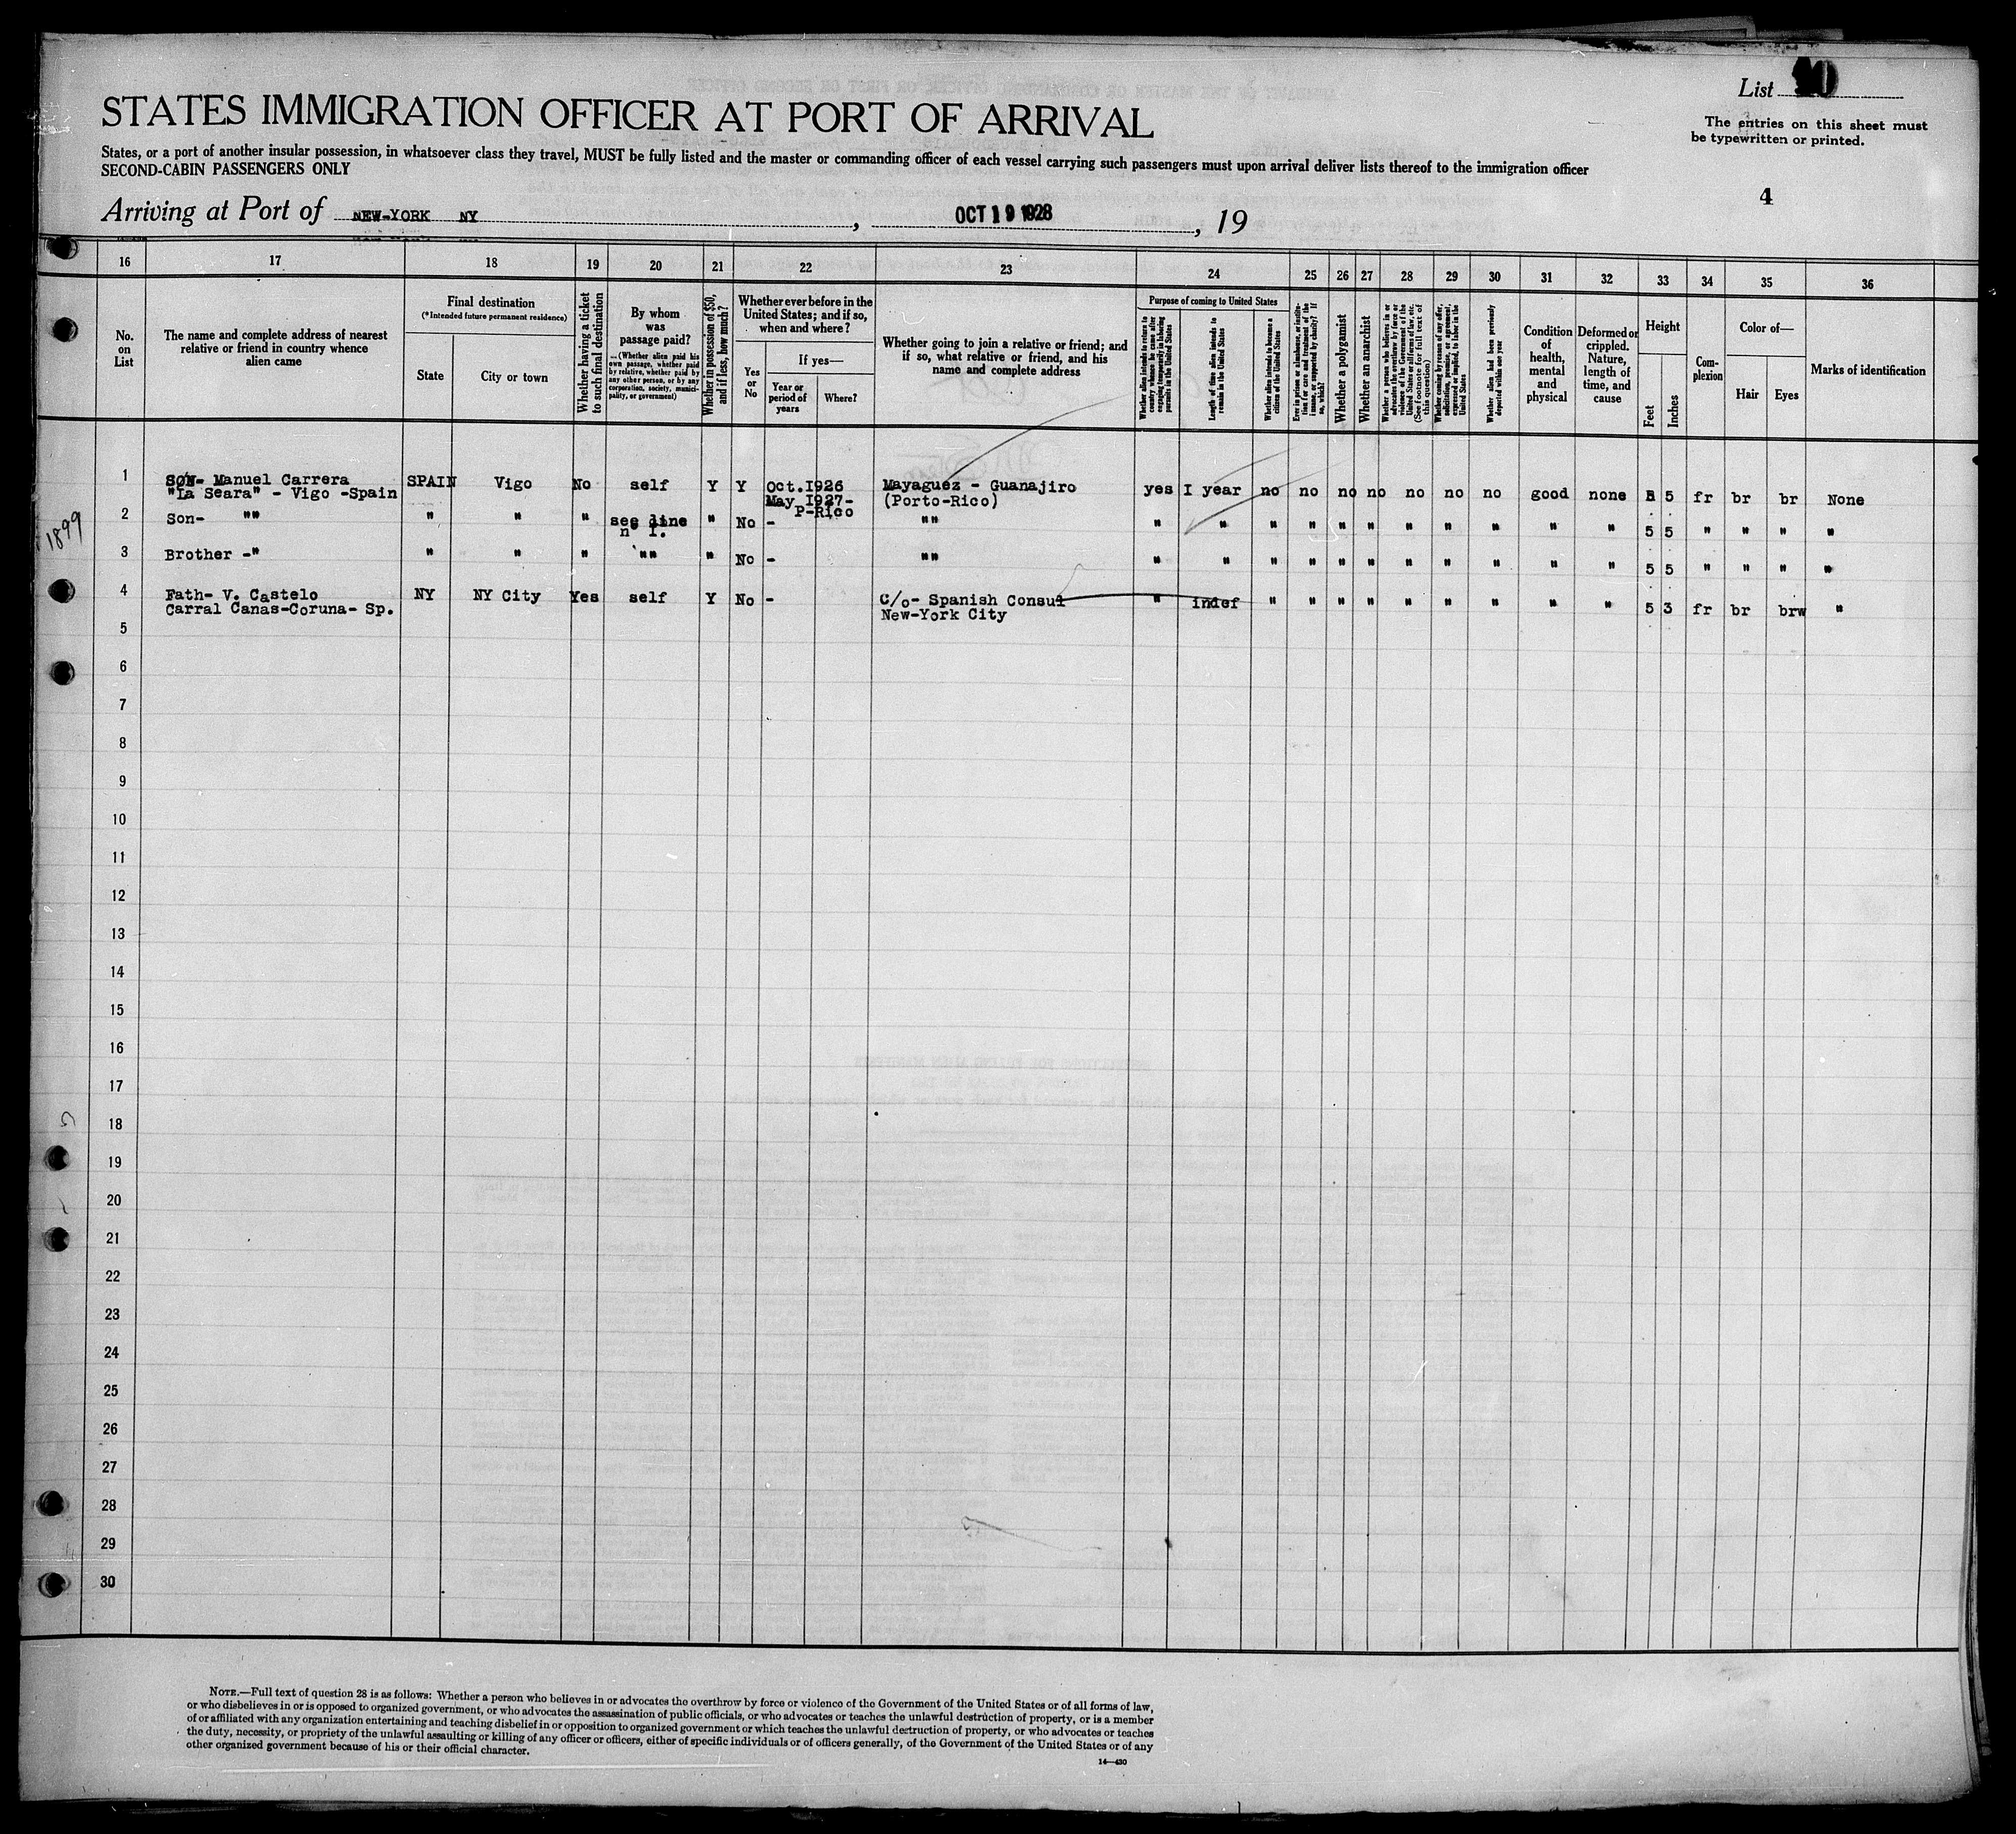 List
STATES IMMIGRATION OFFICER AT PORT OF ARRIVAL
The entries on this sheet must
be typewritten or printed.
States, or a port of another insular possession, in whatsoever class they travel, MUST be fully listed and the master or commanding officer of each vessel carrying such passengers must upon arrival deliver lists thereof to the immigration officer
SECOND-CABIN PASSENGERS ONLY
4
Arriving at Port of NEW-YORK NY, OCT 19 1928, 19
16 17 18 19 20 21 22 23 24 25 26 27 28 29 30 31 32 33 34 35 36
No. on List
The name and complete address of nearest relative or friend in country whence alien came
Final destination
(*Intended future permanent residence)
State
City or town
Whether having a ticket to such final destination
By whom was passage paid?
(Whether alien paid his own passage, whether paid by relative, whether paid by any other person, or by any corporation, society, municipality, or government)
Whether in possession of $50, and if less, how much?
Whether ever before in the United States; and if so, when and where?
Yes or No
If yes—
Year or period of years
Where?
Whether going to join a relative or friend; and if so, what relative or friend, and his name and complete address
Purpose of coming to United States
Whether alien intends to return to country whence he came after engaging temporarily in laboring pursuits in the United States
Length of time alien intends to remain in the United States
Whether alien intends to become a citizen of the United States
Ever in prison or almshouse, or institution for care and treatment of the insane, or supported by charity? If so, which?
Whether a polygamist
Whether an anarchist
Whether a person who believes in or advocates the overthrow by force or violence of the Government of the United States or all forms of law, etc. (See footnote for full text of this question)
Whether coming by reason of any offer, solicitation, promise, or agreement, expressed or implied, to labor in the United States
Whether alien had been previously deported within one year
Condition of health, mental and physical
Deformed or crippled. Nature, length of time, and cause
Height
Feet
Inches
Complexion
Color of—
Hair
Eyes
Marks of identification
1 SON- Manuel Carrera SPAIN Vigo No self Y Y Oct.I926 Mayaguez - Guanajiro yes I year no no no no no no no good none 5 5 fr br br None
"La Seara" - Vigo -Spain May I927- (Porto-Rico)
P-Rico
1899
2 Son- "" " " " see line " No - "" " " " " " " " " " " " 5 5 " " " "
n° I.
3 Brother -" " " " "" " No - "" " " " " " " " " " " " 5 5 " " " "
4 Fath- V. Castelo NY NY City Yes self Y No - C/o- Spanish Consul " indef " " " " " " " " " 5 3 fr br brw "
Carral Canas-Coruna- Sp. New-York City
5
6
7
8
9
10
11
12
13
14
15
16
17
18
19
20
21
22
23
24
25
26
27
28
29
30
NOTE.—Full text of question 28 is as follows: Whether a person who believes in or advocates the overthrow by force or violence of the Government of the United States or of all forms of law,
or who disbelieves in or is opposed to organized government, or who advocates the assassination of public officials, or who advocates or teaches the unlawful destruction of property, or is a member
of or affiliated with any organization entertaining and teaching disbelief in or opposition to organized government or which teaches the unlawful destruction of property, or who advocates or teaches
the duty, necessity, or propriety of the unlawful assaulting or killing of any officer or officers, either of specific individuals or of officers generally, of the Government of the United States or of any
other organized government because of his or their official character.
14—430